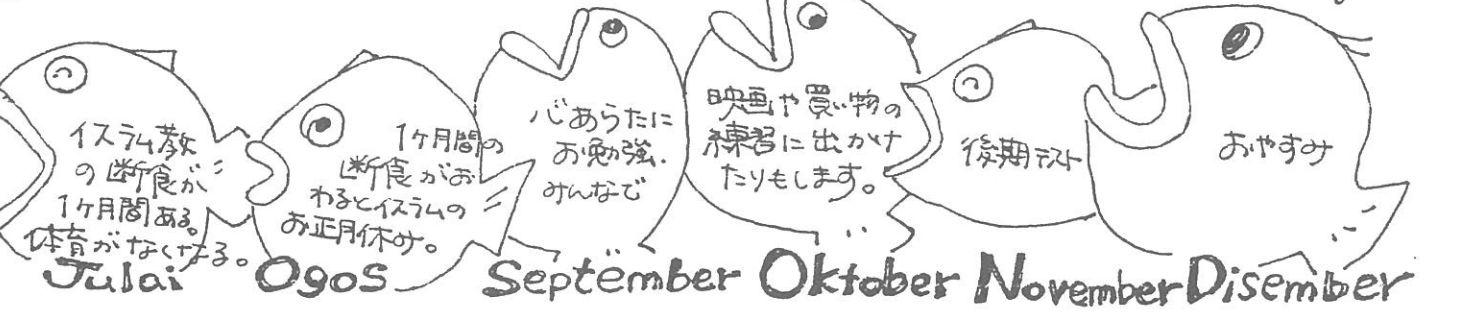 イスラム教
の断食が
1ヶ月間ある。
体育がなくなる。
Julai
1ヶ月間の
断食がお
わるとイスラムの
お正月休み。
Ogos
心あらたに
お勉強.
みんなで
September
映画や買い物の
練習に出かけ
たりもします。
Oktober
後期テスト
November
おやすみ
Disember